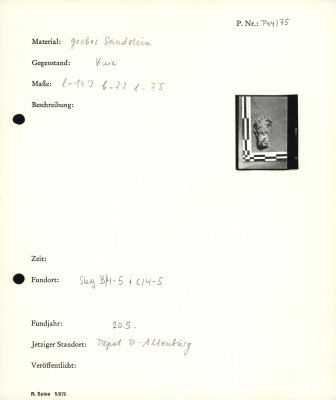 P. Nr.: P44/75
Material: grober Sandstein
Gegenstand: Knie
Maße: l-14.2 b-7.7 d-7.5
Beschreibung:
Zeit:
Fundort: Steg B/4-5 + C/4-5
Fundjahr: 20.5.
Jetziger Standort: Depot D-Altenburg
Veröffentlicht:
R. Spies 5/072